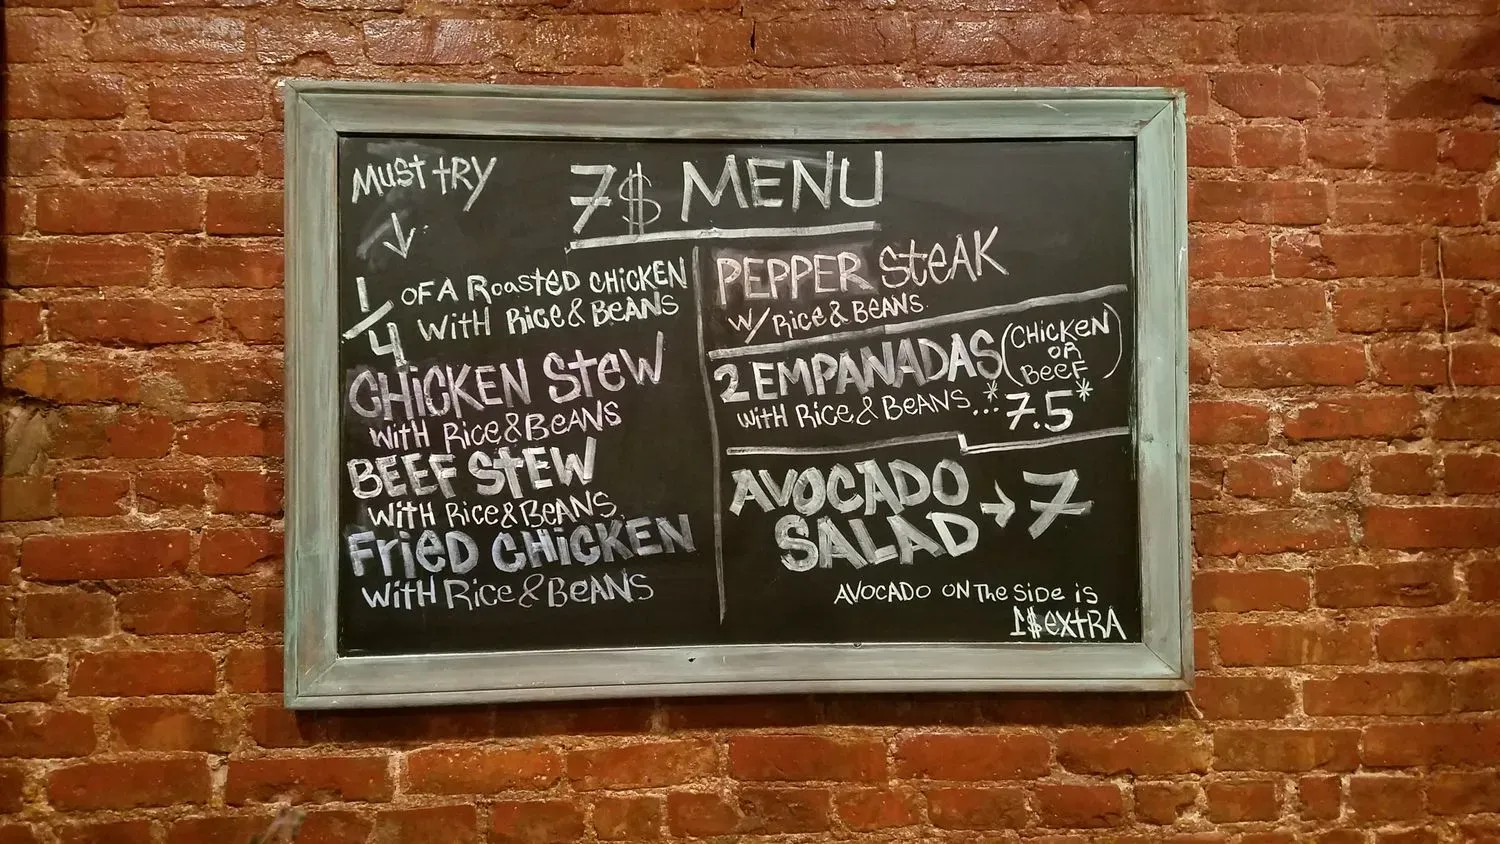 MUST TRY
7$ MENU
1/4 OF A ROASTED CHICKEN
WITH RICE & BEANS
CHICKEN STEW
WITH RICE & BEANS
BEEF STEW
WITH RICE & BEANS
FRIED CHICKEN
WITH RICE & BEANS
PEPPER STEAK
W/ RICE & BEANS
2 EMPANADAS (CHICKEN
OR
BEEF)
WITH RICE & BEANS...*7.5*
AVOCADO
SALAD → 7
AVOCADO ON THE SIDE IS
1$ EXTRA